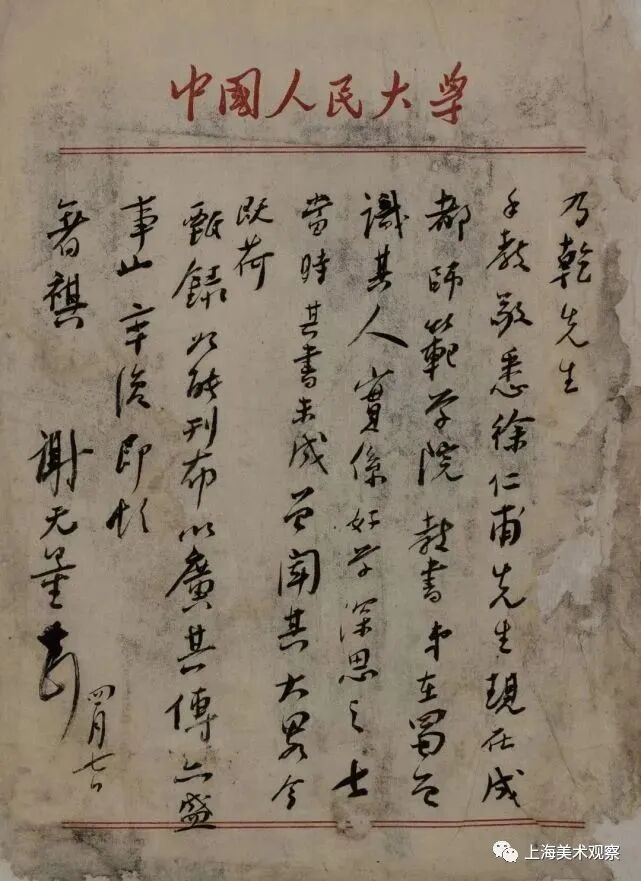 中國人民大學
乃乾先生
手教敬悉徐仁甫先生現在成
都師範学院教書弟在蜀曾
識其人實係好学深思之士
當時其書未成曾聞其大畧今
既荷
甄錄如能刊布以廣其傳亦盛
事也 率復即頌
著祺
謝无量
四月七日
上海美术观察